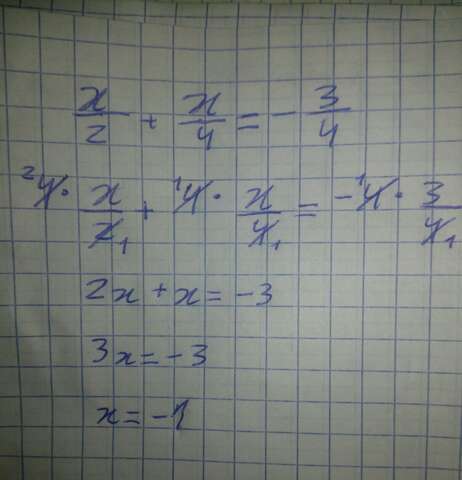 x/2 + x/4 = - 3/4
²4 · x/2₁ + ¹4 · x/4₁ = -¹4 · 3/4₁
2x + x = -3
3x = -3
x = -1